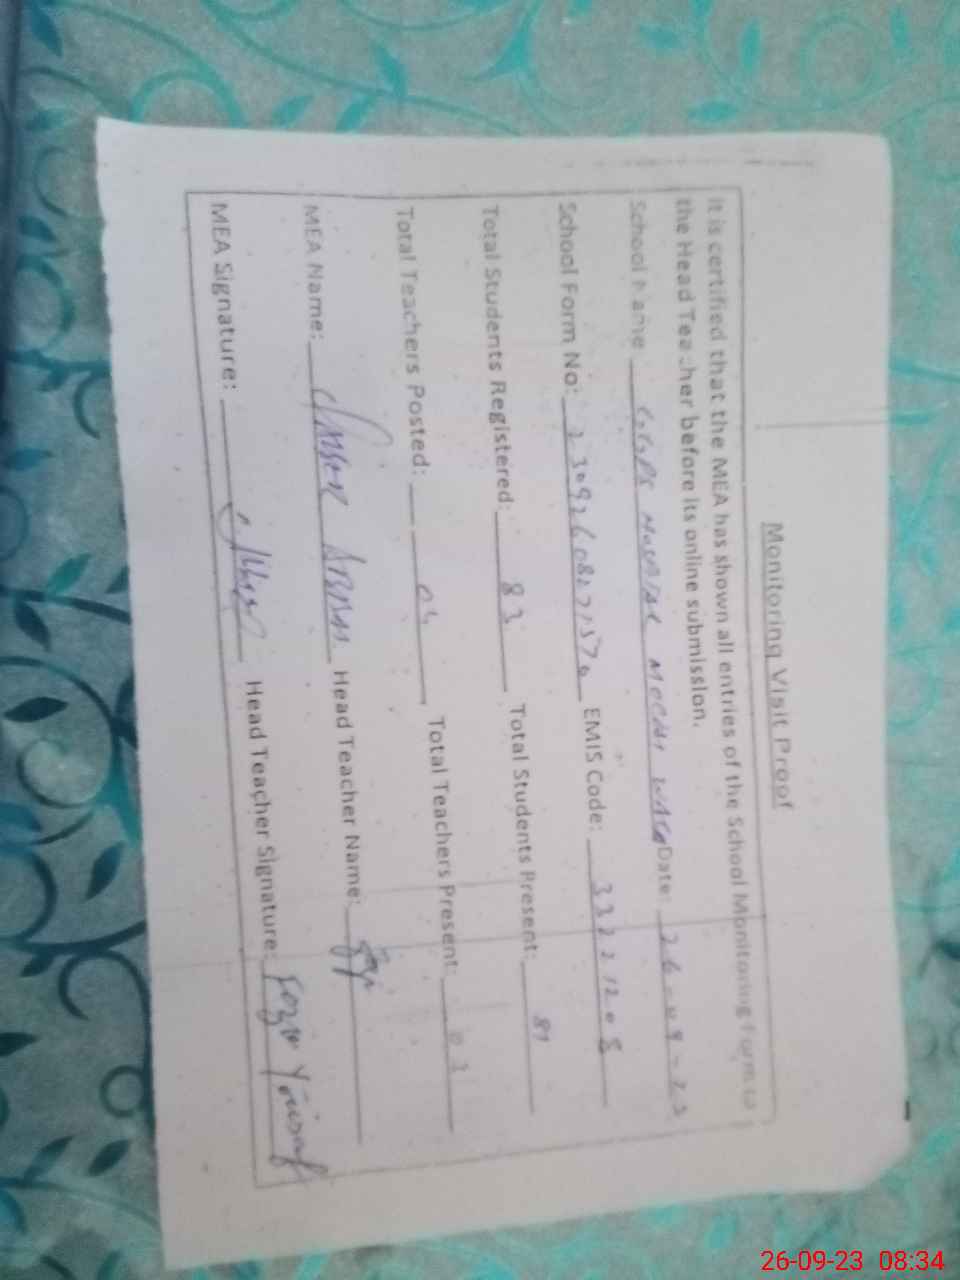 Monitoring Visit Proof
It is certified that the MEA has shown all entries of the School Monitoring Form to
the Head Teacher before its online submission.
School Name GGPS MOCHI WALA Date: 26-09-23
School Form No: EMIS Code: 33221208
Total Students Registered: 83 Total Students Present: 81
Total Teachers Posted: 04 Total Teachers Present: 03
MEA Name: ABBAS Head Teacher Name:
MEA Signature: Head Teacher Signature: Fozia Yousaf
26-09-23 08:34